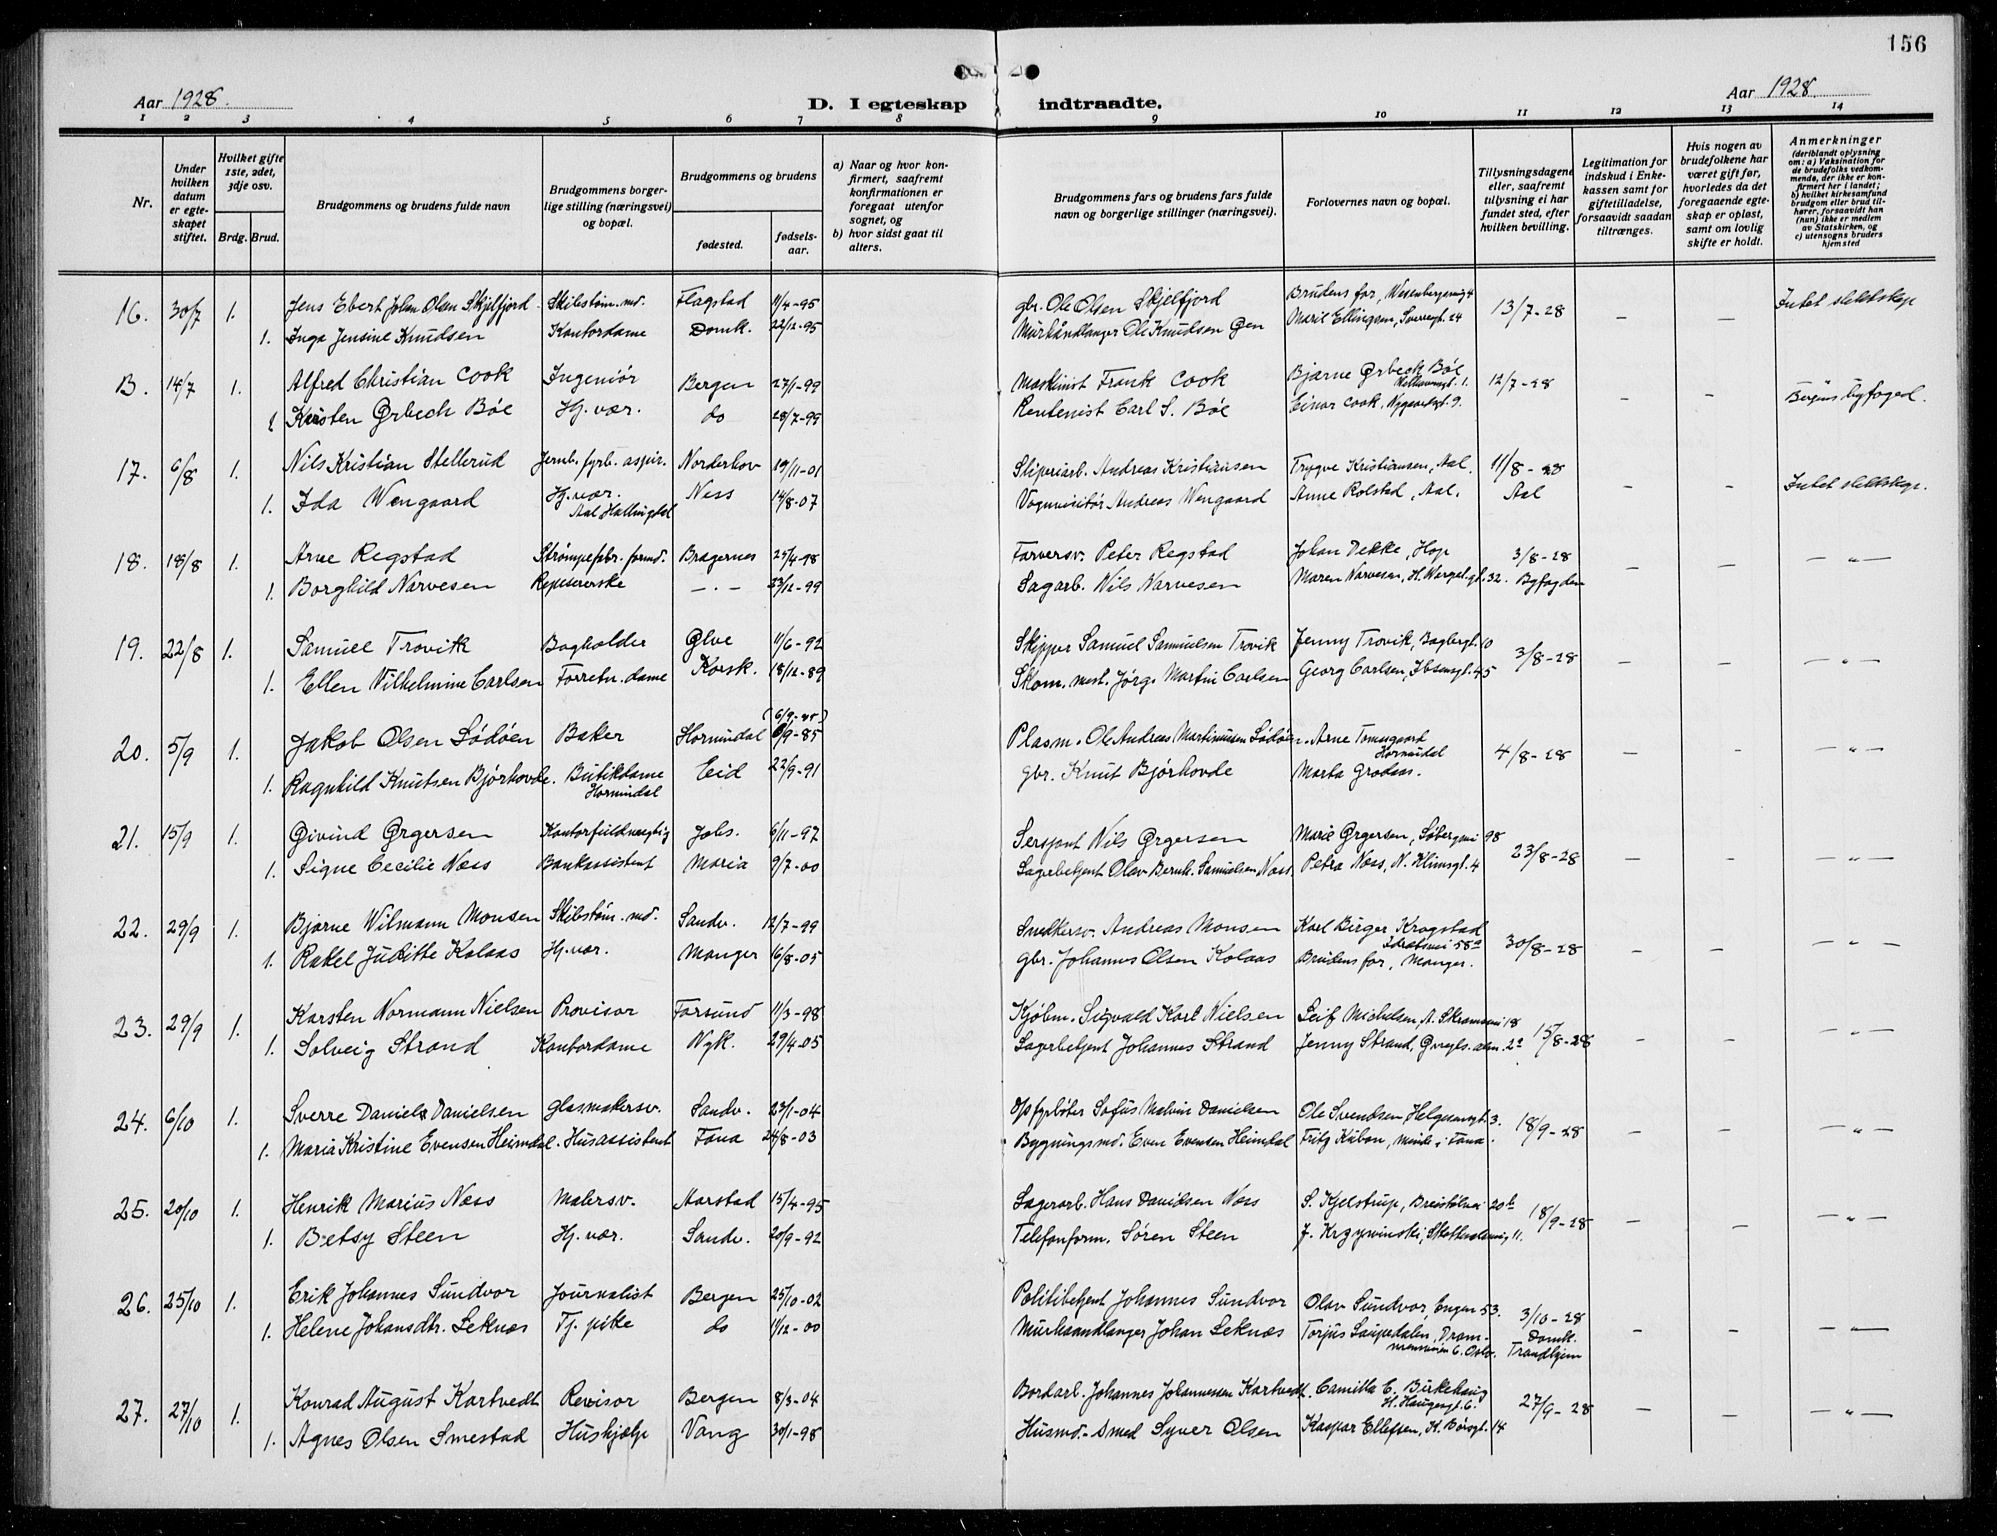 156
Aar 1928.
D. I egteskap indtraadte.
Aar 1928.
1 2 3 4 5 6 7 8 9 10 11 12 13 14
Nr.
Under hvilken datum er egteskapet stiftet.
Hvilket gifte 1ste, 2det, 3dje osv.
Brdg. Brud.
Brudgommens og brudens fulde navn
Brudgommens borgerlige stilling (næringsvei) og bopæl.
Brudgommens og brudens
fødested.
fødselsaar.
a) Naar og hvor konfirmert, saafremt konfirmationen er foregaat utenfor sognet, og
b) hvor sidst gaat til alters.
Brudgommens fars og brudens fars fulde navn og borgerlige stillinger (næringsvei).
Forlovernes navn og bopæl.
Tillysningsdagene eller, saafremt tillysning ei har fundet sted, efter hvilken bevilling.
Legitimation for indskud i Enkekassen samt for giftetilladelse, forsaavidt saadan tiltrænges.
Hvis nogen av brudefolkene har været gift før, hvorledes da det foregaaende egteskap er opløst, samt om lovlig skifte er holdt.
Anmerkninger (deriblandt oplysning om: a) Vaksination for de brudefolks vedkommende, der ikke er konfirmert her i landet; b) hvilket kirkesamfund brudgom eller brud tilhører, forsaavidt han (hun) ikke er medlem av Statskirken, og c) utensogns bruders hjemsted
16. 30/7 1. Jens Ebert Johan Olsen Skjelfjord Skibstøm.md. Flagstad 11/4-95 gbr. Ole Olsen Skjelfjord Brudens far, Wesenbergsvig 4 13/7-28 – – Intet slektskap
1. Inga Jensine Knudsen Kontordame Domk. 22/12-95 Murhåndlanger Ole Knudsen Marie Ellingsen, 24
B. 14/7 1. Alfred Christian Cook Ingeniör Bergen 27/1-99 Maskinist Frank Cook Bjarne Ørbech Böe 12/7-28 – – Bergens byfoged.
1 Kirsten Ørbech Böe Hj.vær. do 28/7-99 Rentenist Carl S. Böe Einar Cook, Nygaardsgt 9.
17. 6/8 1. Nils Kristian Stellerud Jernb. fyrb. aspir. Norderhov 19/11-01 Sliperiarb. Andreas Kristiansen Trygve Kristiansen, Aal. 11/8-28 – – Intet slektskap.
1. Ida Wengaard Hj.vær. Ness 14/8-07 Vognvisitör Andreas Wengaard Anne Rolstad, Aal. Aal
Aal Hallingdal
18. 18/8 1. Arne Regstad Strømpefabr. formd. Bragernes 25/4-98 Farversv. Peter Regstad Johan Dekke, Hop 3/8-28 – – –"–
1. Borghild Narvesen Repesererske –.– 23/12-99 Sagarb. Nils Narvesen Maren Narvesen, H. Wergel.gt. 32. Byfogden
19. 22/8 1. Samuel Trovik Bogholder Ølve 11/6-92 Skipper Samuel Samuelsen Trovik Jenny Trovik, Bagbergt. 10 3/8-28 – – –"–
1. Ellen Vilhelmine Carlsen Forretn.dame Korsk. 18/12-89 Skom. mest. Jørg. Martin Carlsen Georg Carlsen, Ibsensgt. 45
20. 5/9 1. Jakob Olsen Lödöen Baker Hornindal 6/9-85 Plasm. Ole Andreas Martinusen Lödöen. Arne Tomasgaard 4/8-28 – – –"–
Hornindal
1. Ragnhild Knutsen Bjørhovde. Butikdame Eid 22/9-91 gbr. Knut Bjørhovde Marta Grodaas.
Hornindal
21. 15/9 1. Øivind Ørgersen Kontorfuldmegtig Johs. 6/11-97 Sersjant Nils Ørgersen Marie Ørgersen, 98 23/8-28 – – –"–
1. Signe Cecilie Næss Bankassistent Maria 9/7-00 Lagerbetjent Olav Bernh. Samuelsen Næss Petra Næss, N. Klimsgt. 4
22. 29/9 1. Bjarne Wilmann Monsen Skibstøm.md. Sandv. 12/7-99 Snekkersv. Andreas Monsen Karl Birger Krogstad 30/8-28 – – –"–
Idrætsvei 58a
1. Rakel Juditte Kolaas Hj.vær. Manger 16/8-05 gbr. Johannes Olsen Kolaas Brudens far, Manger.
23. 29/9 1. Karsten Normann Nielsen Provisor Farsund 11/3-98 Kjøbm. Sigvald Karl Nielsen Leif Michelsen, 18 15/8-28 – – –"–
1. Solveig Strand Kontordame Nyk. 29/4-05 Lagerbetjent Johannes Strand Jenny Strand, 2a
24. 6/10 1. Sverre Daniel Danielsen Glasmakersv. Sandv. 23/1-04 Opfyrböter Sofus Malvin Danielsen Ole Svendsen Helgesensgt. 3. 18/9-28 – – –"–
1. Maria Kristine Evensen Heimdal. Husassistent Fana 24/8-03 Bygningsmd. Even Evensen Heimdal Fritz Kubon, Minde i Fana.
25. 20/10 1. Henrik Marius Næss Malersv. Aarstad 15/4-95 Lagerarb. Hans Danielsen Næss S. Kjelstrup, 20b 18/9-28 – – –"–
1. Betsy Steen Hj.vær. Sandv. 20/9-92 Telefonform. Søren Steen J. Krzywinski, 11.
26. 25/10 1. Erik Johannes Sundvor Journalist Bergen 25/10-02 Politibetjent Johannes Sundvor Olav Sundvor, Engen 53. 3/10-28 – – –"–
1. Helene Johansdtr. Leknes Tj. pike do 1/12-00 Murhaandlanger Johan Leknes Torjus Laupedalen, Drammensveien 6. Oslo. Domk. Trondhjem
27. 27/10 1. Konrad August Kartvedt Revisor Bergen 8/3-04 Bordarb. Johannes Johannessen Kartvedt. Camilla E. Birkehaug 27/9-28 – – –"–
H. Haugesgt. 6.
1. Agnes Olsen Smestad Hushjælp Vang 30/1-98 Husmd.-Smed Syver Olsen Kaspar Ellefsen, K. Børsgt. 14